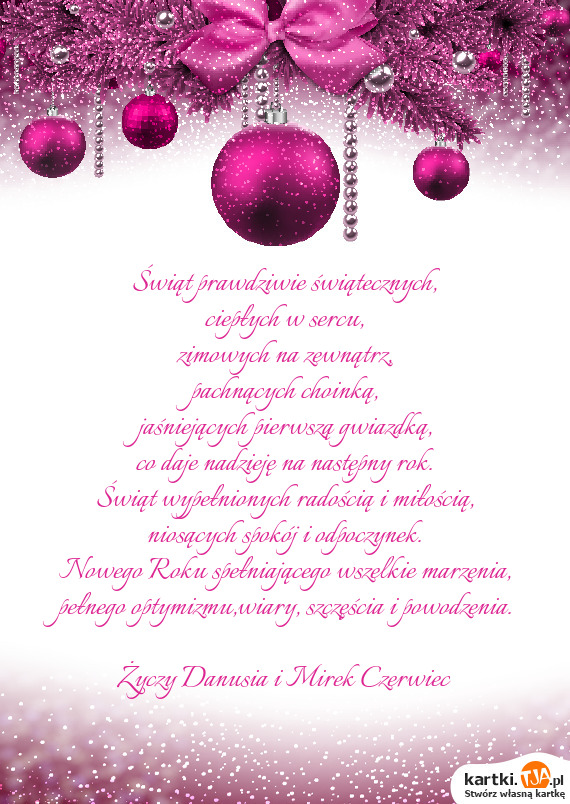 Świąt prawdziwie świątecznych,
ciepłych w sercu,
zimowych na zewnątrz,
pachnących choinką,
jaśniejących pierwszą gwiazdką,
co daje nadzieję na następny rok.
Świąt wypełnionych radością i miłością,
niosących spokój i odpoczynek.
Nowego Roku spełniającego wszelkie marzenia,
pełnego optymizmu,wiary, szczęścia i powodzenia.
Życzy Danusia i Mirek Czerwiec
kartki.TJA.pl
Stwórz własną kartkę